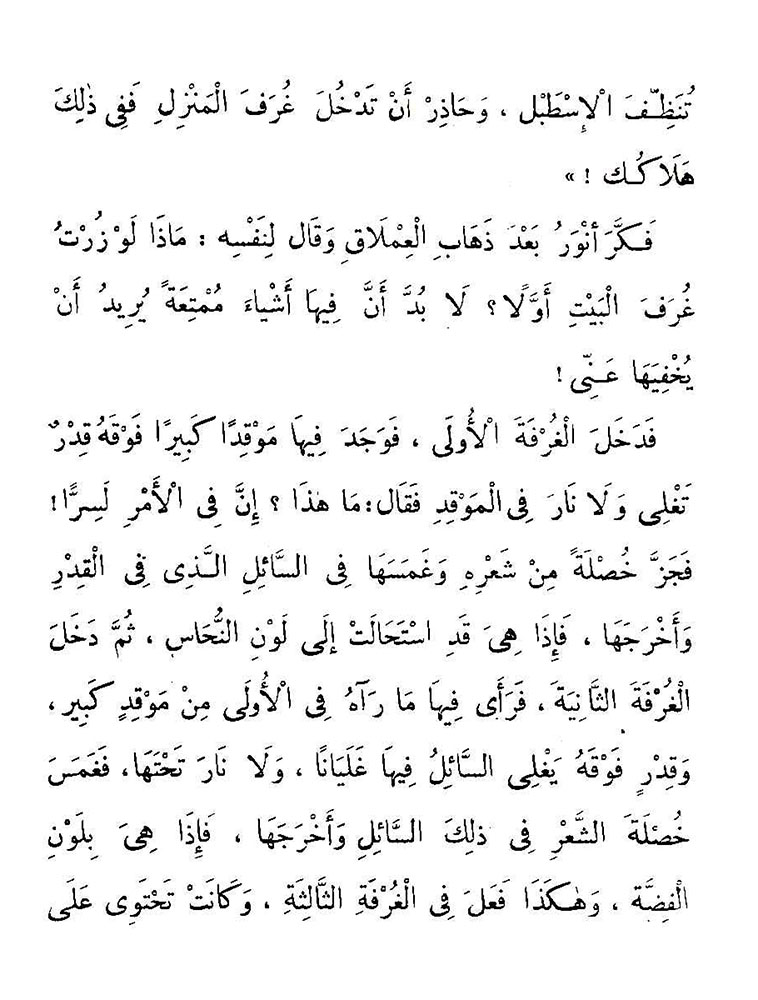 تُنَظِّفَ الْإِسْطَبْل ، وَحَاذِرْ أَنْ تَدْخُلَ غُرَفَ الْمَنْزِلِ فَفِي ذٰلِكَ
هَلَاكُـك ! »
فَـكَّرَ أنْوَرُ بَعْدَ ذَهَابِ الْعِمْلَاقِ وَقَال لِنَفْسِه : مَاذَا لَوْ زُرْتُ
غُرَفَ الْبَيْتِ أَوَّلًا ؟ لَا بُدَّ أَنَّ فِيهَا أَشْيَاءَ مُمْتِعَةً يُرِيدُ أَنْ
يُخْفِيَهَا عَـنِّى !
فَدَخَلَ الْغُرْفَةَ الْأُولَى ، فَوَجَدَ فِيهَا مَوْقِدًا كَبِيرًا فَوْقَهُ قِدْرٌ
تَغْلِى وَلَا نَارَ فِى الْمَوْقِدِ فَقَال : مَا هٰذَا ؟ إِنَّ فِى الْأَمْرِ لَسِرًّا !
فَجَزَّ خُصْلَةً مِنْ شَعْرِهِ وَغَمَسَهَا فِى السَّائِلِ الَّـذِى فِى الْقِدْرِ
وَأَخْرَجَهَا ، فَإِذَا هِىَ قَدِ اسْتَحَالَتْ إلَى لَوْنِ النُّحَاسِ ، ثُمَّ دَخَلَ
الْغُرْفَةَ الثَّانِيَةَ ، فَرَأَى فِيهَا مَا رَآهُ فِى الْأُولَى مِنْ مَوْقِدٍ كَبِير ،
وَقِدْرٍ فَوْقَهُ يَغْلِى السَّائِلُ فِيهَا غَلَيَانًا ، وَلَا نَارَ تَحْتَهَا ، فَغَمَسَ
خُصْلَةَ الشَّعْرِ فِى ذلِكَ السَّائِلِ وَأَخْرَجَهَا ، فَإِذَا هِىَ بِلَوْنِ
الْفِضَّة ، وَهٰكَذَا فَعَلَ فِى الْغُرْفَةِ الثَّالِثَةِ ، وَكَانَتْ تَحْتَوِى عَلَى